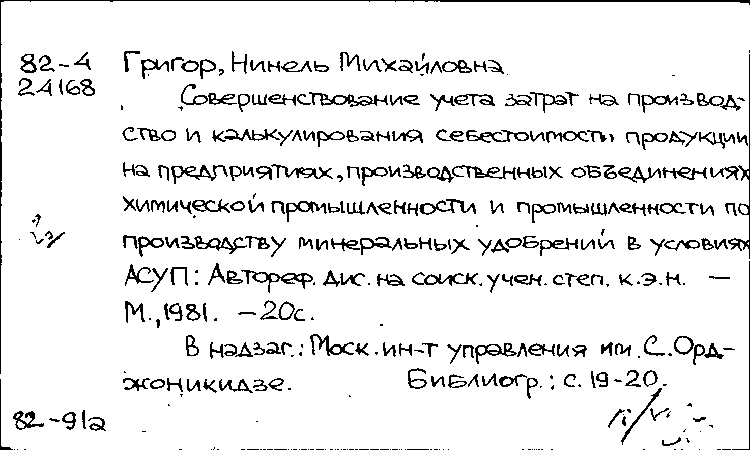 82-4 Григор, Нинель Михайловна
24168
Совершенствование учета затрат на производ-
ство и калькулирования себестоимости продукции
на предприятиях, производственных объединениях
химической промышленности и промышленности по
производству минеральных удобрений в условиях
АСУП: Автореф. дис. на соиск. учен. степ. к.э.н. —
М., 1981. — 20с.
В надзаг.: Моск. ин-т управления им. С. Орд-
жоникидзе. Библиогр.: с. 19-20.
82-91а